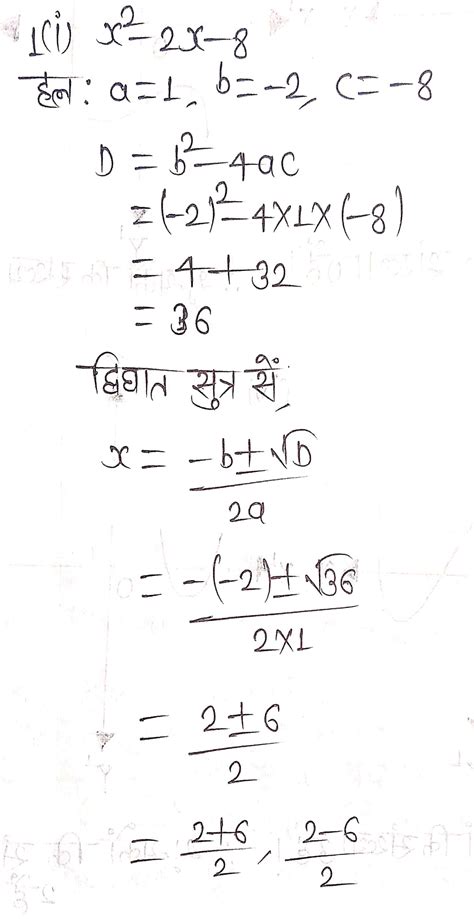 1(i) x²-2x-8
हल: a=1, b=-2, c=-8
D = b²-4ac
=(-2)²-4×1×(-8)
= 4+32
= 36
द्विघात सुत्र सें,
x = (-b±√D)/2a
= (-(-2)±√36)/(2×1)
= (2±6)/2
= (2+6)/2, (2-6)/2